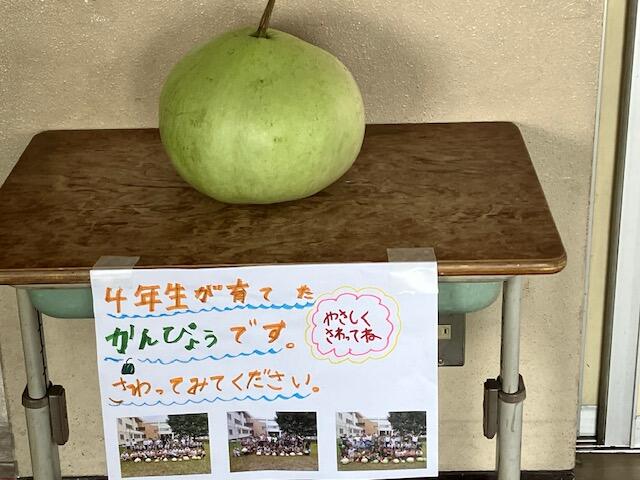 4年生が育てた
かんぴょうです。
さわってみてください。
やさしく
さわってね